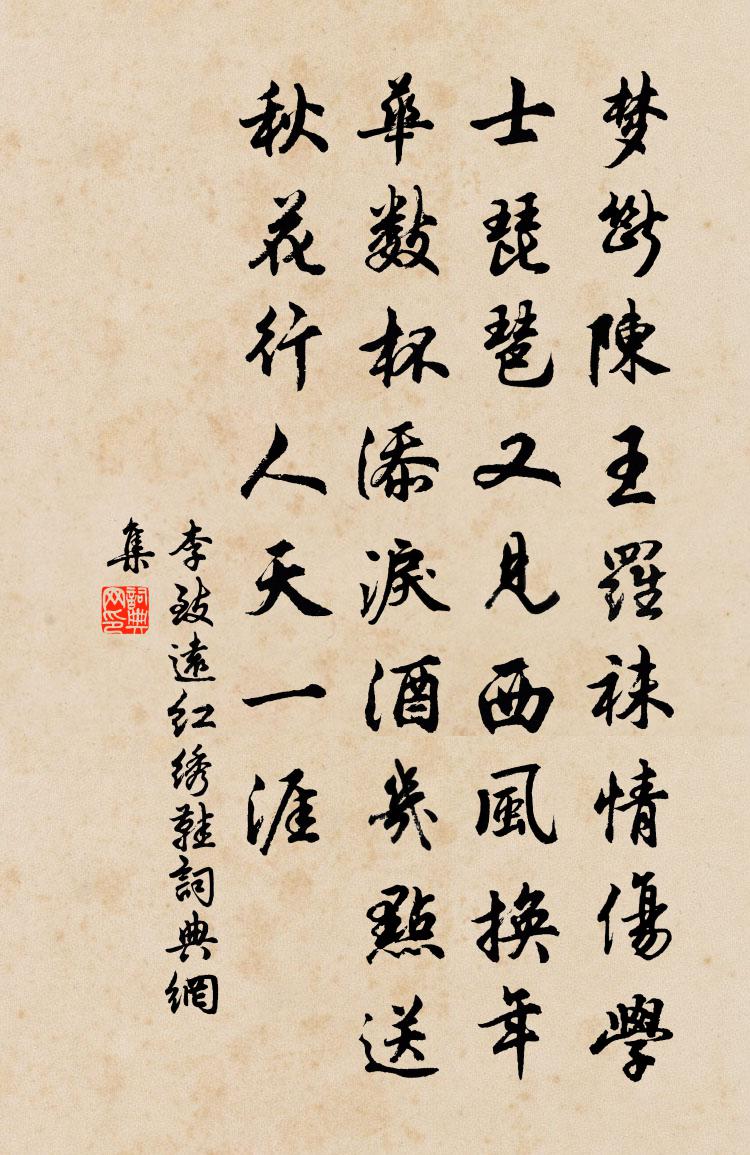 梦斷陳王羅襪情傷學
士琵琶又見西風換年
華數杯添淚酒幾點送
秋花行人天一涯
李致遠红绣鞋詞典網
集
詞典
网印